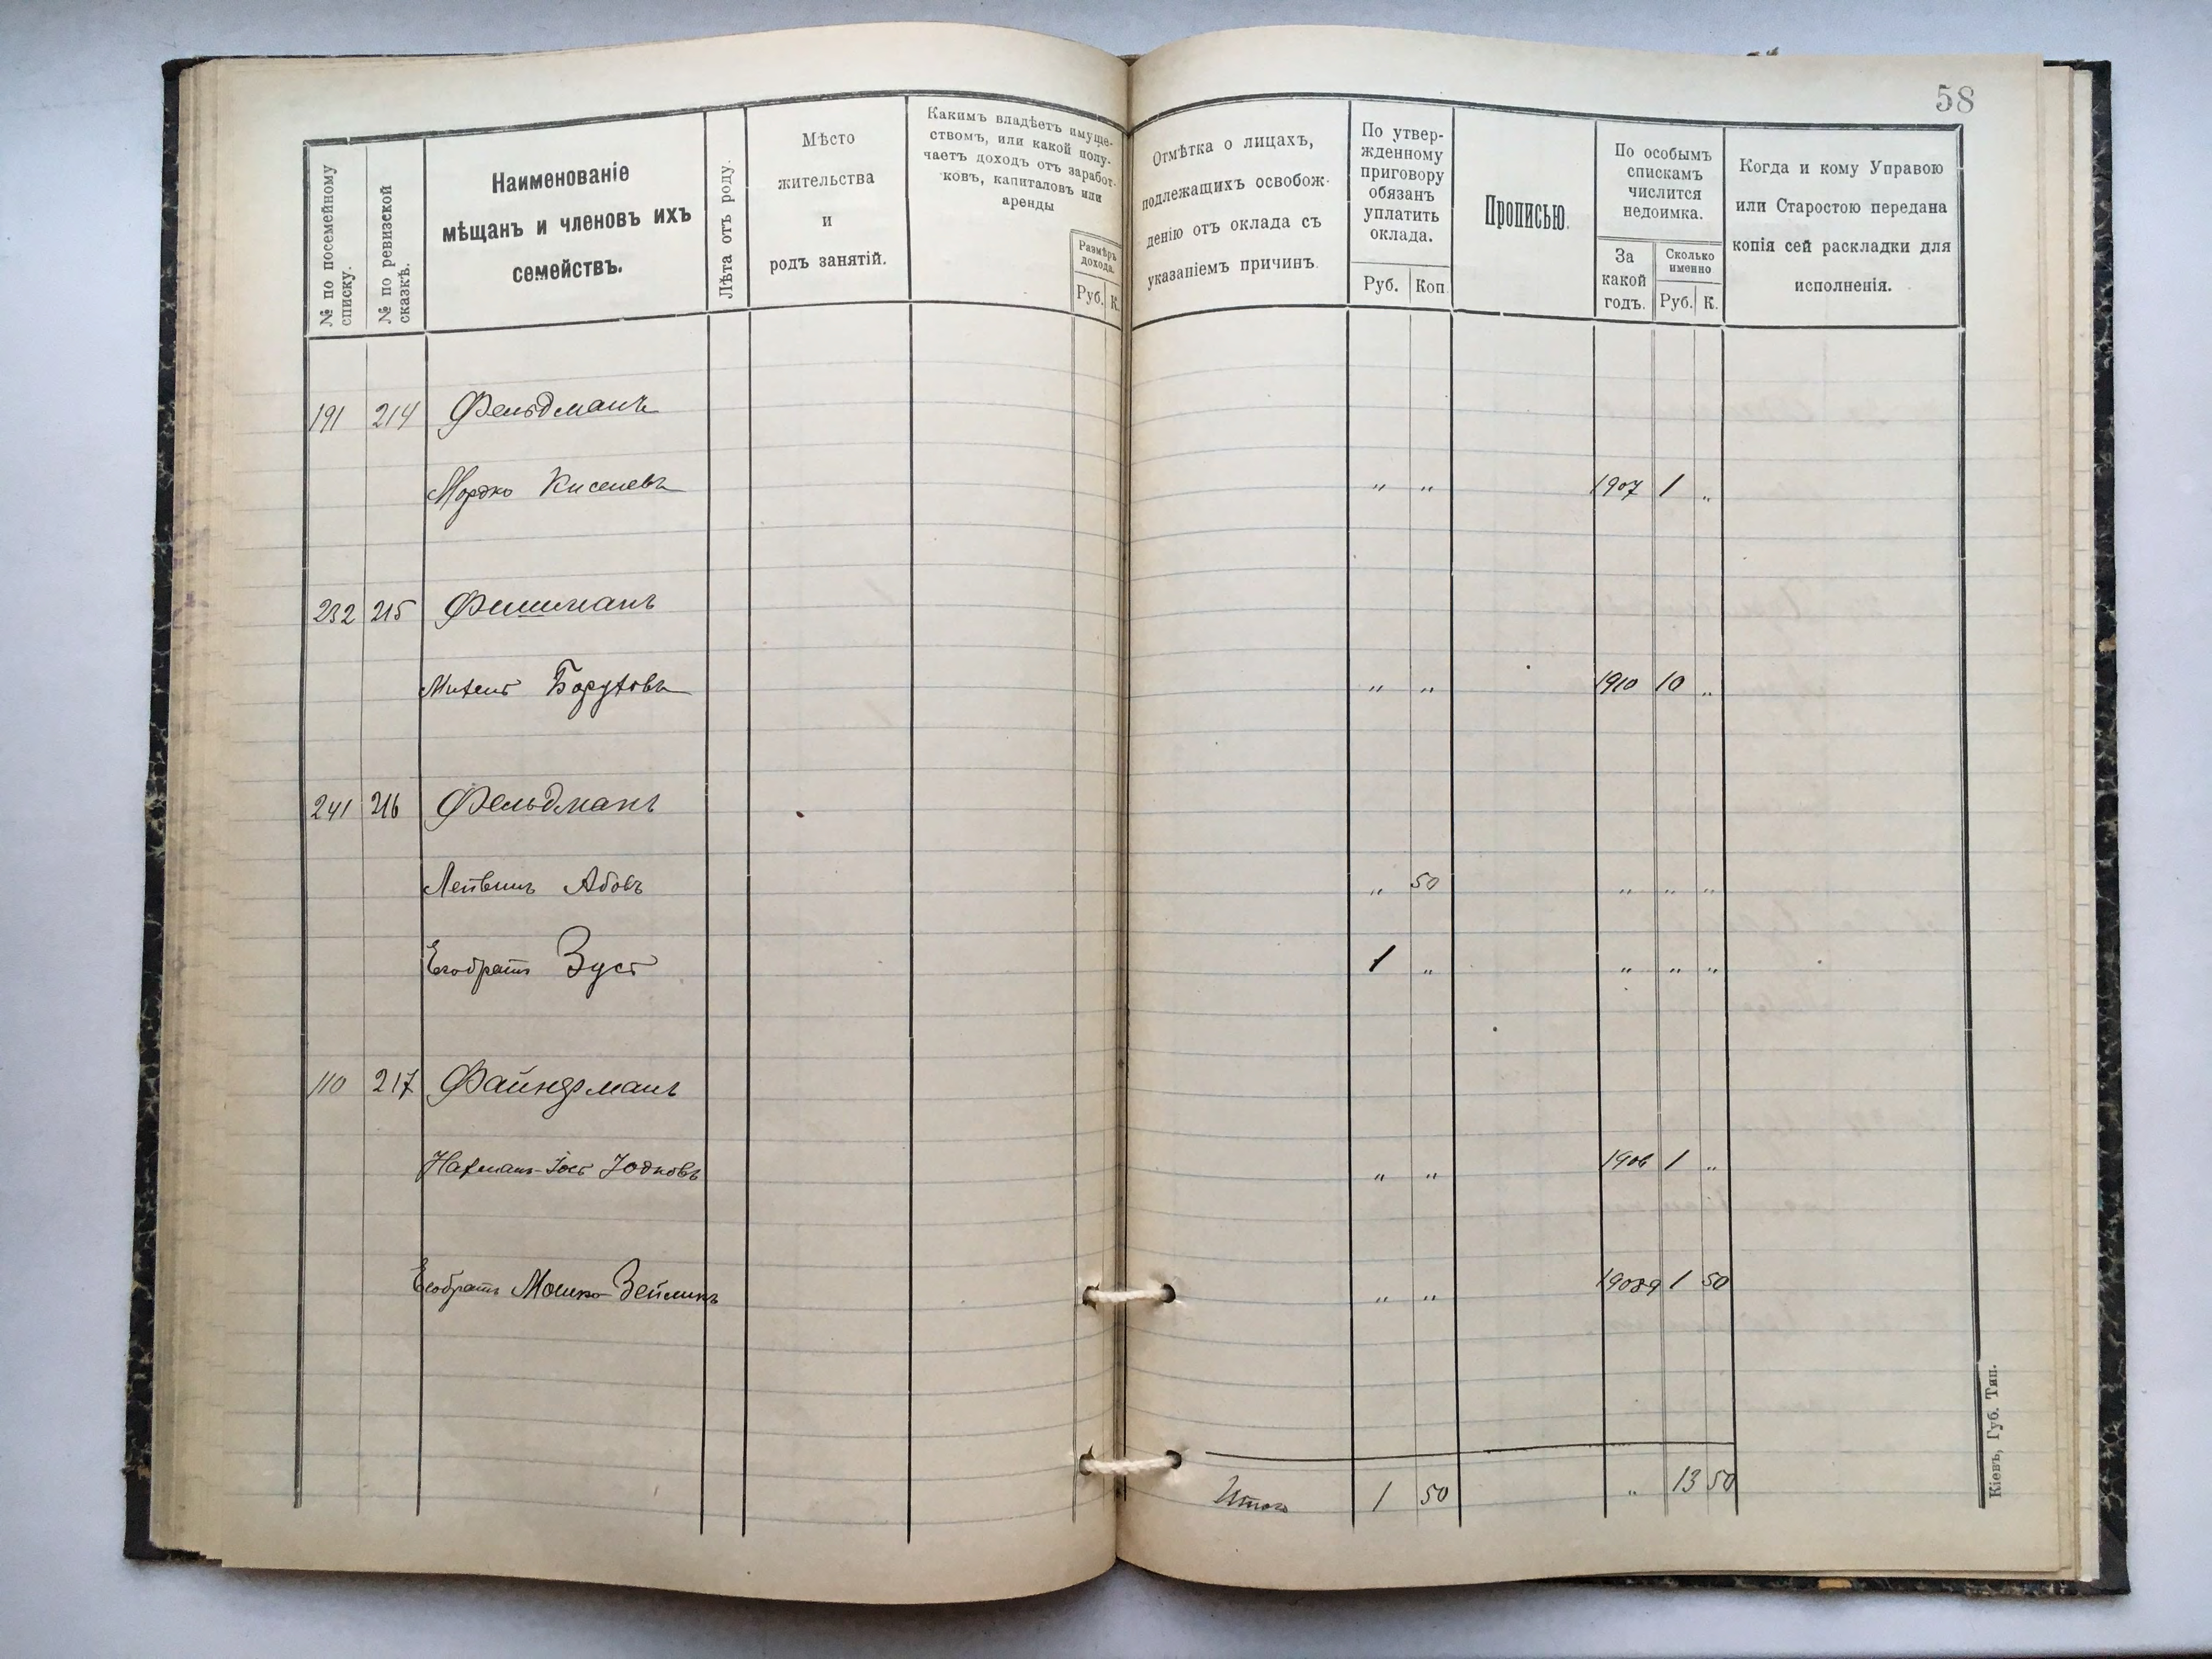 58
№ по посемейному списку.
№ по ревизской сказкѣ.
Наименованіе
мѣщанъ и членовъ ихъ
семействъ.
Лѣта отъ роду.
Мѣсто
жительства
и
родъ занятій.
Какимъ владѣетъ имуще-
ствомъ, или какой полу-
чаетъ доходъ отъ заработ-
ковъ, капиталовъ или
аренды
Размѣръ
дохода.
Руб. К.
Отмѣтка о лицахъ,
подлежащихъ освобож-
денію отъ оклада съ
указаніемъ причинъ.
По утвер-
жденному
приговору
обязанъ
уплатить
оклада.
Руб. Коп.
Прописью.
По особымъ
спискамъ
числится
недоимка.
За
какой
годъ.
Сколько
именно
Руб. К.
Когда и кому Управою
или Старостою передана
копія сей раскладки для
исполненія.
191 214 Фельдманъ
Мордко Киселевъ " " 1907 1 "
232 215 Фишманъ
Михель Боруховъ " " 1910 10 "
241 216 Фельдманъ
Лейвишъ Абовъ " 50 " " "
Егобратъ Зусь 1 " " " "
110 217 Файндманъ
Нахманъ-Іось Іодковъ " " 1906 1 "
Егобратъ Мошко-Зейликъ " " 19089 1 50
Итого 1 50 " 13 50
Кіевъ, Губ. Тип.